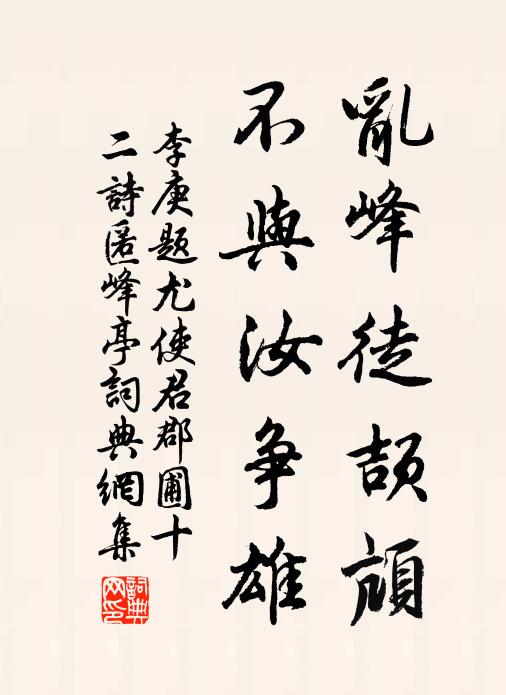 亂峰徒頡頏
不與汝爭雄
李庚題尤使君郡圃十
二詩匿峰亭詞典網集